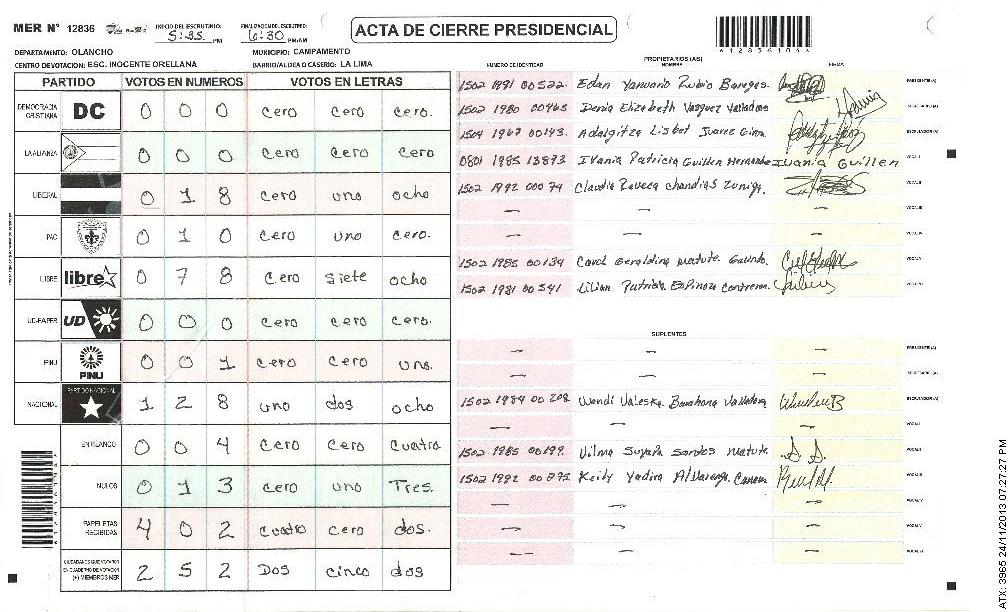 MER N° 12836
INICIO DEL ESCRUTINIO: 5:35 PM
FINALIZACION DEL ESCRUTINIO: 6:30 PM/AM
ACTA DE CIERRE PRESIDENCIAL
DEPARTAMENTO: OLANCHO
MUNICIPIO: CAMPAMENTO
CENTRO DE VOTACION: ESC. INOCENTE ORELLANA
BARRIO/ALDEA O CASERIO: LA LIMA
PARTIDO VOTOS EN NUMEROS VOTOS EN LETRAS
DEMOCRACIA CRISTIANA DC 0 0 0 cero cero cero.
LA ALIANZA 0 0 0 cero cero cero
LIBERAL 0 1 8 cero uno ocho
PAC 0 1 0 cero uno cero.
LIBRE libre 0 7 8 cero siete ocho
UD-FAPER UD 0 0 0 cero cero cero.
PINU PINU 0 0 1 cero cero uno.
NACIONAL PARTIDO NACIONAL 1 2 8 uno dos ocho
EN BLANCO 0 0 4 cero cero cuatro
NULOS 0 1 3 cero uno Tres.
PAPELETAS RECIBIDAS 4 0 2 cuatro cero dos.
CIUDADANOS QUE VOTARON EN CUADERNO DE VOTACION (+) MIEMBROS MER 2 5 2 Dos cinco dos
PROPIETARIOS (AS)
NUMERO DE IDENTIDAD NOMBRE FIRMA
1502 1991 00522 Edan Yanuario Rubio PRESIDENTE (A)
1502 1980 00465 Denia Elizabeth Vasquez SECRETARIO (A)
1504 1967 00143 Adalgitza Lisbet Juarez ESCRUTADOR (A)
0801 1985 13873 Ivania Patricia Guillen Hernandez Ivania Guillen VOCAL I
1502 1992 00074 Claudia Zuniga. VOCAL II
— — —
— — — VOCAL IV
1502 1985 00134 Carol Geraldina Matute VOCAL V
1502 1981 00541 Lilian Patricia Espinoza VOCAL VI
SUPLENTES
— — — PRESIDENTE (A)
— — — SECRETARIO (A)
1502 1984 00208 Wendi Valeska Barahona ESCRUTADOR (A)
— — — VOCAL I
1502 1985 00199 Vilma Suyapa Santos Matute. VOCAL II
1502 1992 00275 Keily Yadira VOCAL III
— — — VOCAL IV
— — — VOCAL V
— — — VOCAL VI
ATX: 3965 24/11/2013 07:27:27 PM